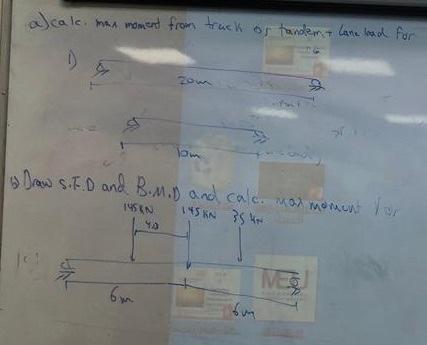 a) calc. max moment from truck or tandem + Lane load for
1)
20m
10m
b) Draw S.F.D and B.M.D and calc. max moment for
145KN 145KN 35KN
6m
6m